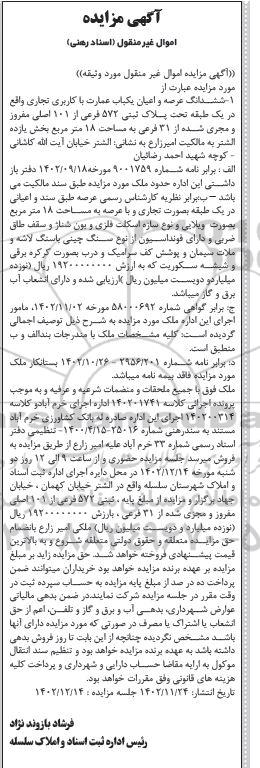 آگهی مزایده
اموال غیر منقول (اسناد رهنی)
((آگهی مزایده اموال غیر منقول مورد وثیقه))
مورد مزایده عبارت از
۱-ششدانگ عرصه و اعیان یکباب عمارت با کاربری تجاری واقع
در یک طبقه تحت پلاک ثبتی ۵۷۲ فرعی از ۱۰۱ اصلی مفروز
و مجزی شده از ۳۱ فرعی به مساحت ۱۸ متر مربع بخش یازده
الشتر به مالکیت امیرزارع به نشانی: الشتر خیابان آیت الله کاشانی
- کوچه شهید احمد رضائیان
الف : برابر نامه شماره ۹۰۰۱۷۵۹ مورخه ۱۴۰۲/۰۹/۱۸ دفتر باز
داشتی این اداره حدود ملک مورد مزایده طبق سند مالکیت می
باشد – ب:برابر نظریه کارشناس رسمی عرصه طبق سند و اعیانی
در یک طبقه بصورت تجاری و با عرصه به مساحت ۱۸ متر مربع
بصورت ویلایی و نوع سازه اسکلت فلزی و بون شناژ و سقف طاق
ضربی و دارای فونداسیون از نوع سنگ چینی باسنگ لاشه و
ملات سیمان و پوشش کف سرامیک و درب بصورت کرکره برقی
و شیشه سکوریت که به ارزش ۱۹۲۰۰۰۰۰۰۰۰ ریال (نوزده
میلیاردو دویست میلیون ریال )ارزیابی شده و دارای انشعاب آب
برق و گاز میباشد.
ج: برابر گواهی شماره ۵۸۰۰۰۶۹۲ مورخه ۱۴۰۲/۱۱/۰۲، مامور
اجرای این اداره ملک مورد مزایده به شرح ذیل توصیف اجمالی
گردیده است: کلیه مشخصات ملک با مندرجات بندالف و ب
منطبق است.
د:برابر نامه شماره ۲۹۵۶/۲۰۱ - ۱۴۰۲/۱۰/۲۶ بستانکار ملک
مورد مزایده فاقد بیمه نامه میباشد.
ملک فوق با جمیع ملحقات و منضمات شرعیه و عرفیه و به موجب
پرونده اجرائی کلاسه ۱۴۰۲۰۱۷۴۱ اداره اجرای خرم آبادو کلاسه
۱۴۰۲۰۰۳۱۴ اجرای این اداره صادره له بانک کشاورزی خرم آباد
مستند به سندرهنی شماره ۲۵۰۱۶-۱۴۰۰/۴/۱۵- تنظیمی دفتر
اسناد رسمی شماره ۳۳ خرم آباد علیه امیر زارع از طریق مزایده به
فروش میرسد جلسه مزایده حضوری و از ساعت ۹ الی ۱۲ روز دو
شنبه مورخه ۱۴۰۲/۱۲/۱۴ در محل دایره اجرای اداره ثبت اسناد
و املاک شهرستان سلسله واقع در الشتر خیابان کهمان ، خیابان
جهاد برگزار و مزایده از مبلغ پایه ، ثبتی ۵۷۲ فرعی از ۱۰۱ اصلی
مفروز و مجزی شده از ۳۱ فرعی ، بارزش ۱۹۲۰۰۰۰۰۰۰۰ ریال
(نوزده میلیارد و دویست میلیون ریال) ملکی امیر زارع بانضمام
حق مزایده متعلقه و حقوق دولتی متعلقه شروع و به بالاترین
قیمت پیشنهادی فروخته خواهد شد. حق مزایده زاید بر مبلغ
مزایده بر عهده برنده مزایده خواهد بود خریداران میتوانند ضمن
پرداخت ده در صد از مبلغ پایه مزایده به حساب سپرده ثبت در
وقت مقرر در جلسه مزایده شرکت نمایند.در ضمن بدهی مالیاتی
عوارض شهرداری، بدهی آب و برق و گاز و تلفن، اعم از حق
انشعاب یا اشتراک یا مصرف در صورتی که مورد مزایده دارای آنها
باشد مشخص نگردیده چنانچه از این بابت تا روز فروش بدهی
داشته باشد به عهده برنده مزایده خواهد بود و تنظیم سند انتقال
موکول به ارایه مفاصا حساب دارایی و شهرداری و پرداخت کلیه
هزینه های قانونی وفق مقررات خواهد بود.
تاریخ انتشار: ۱۴۰۲/۱۱/۲۴ جلسه مزایده : ۱۴۰۲/۱۲/۱۴
فرشاد بازوند نژاد
رئیس اداره ثبت اسناد و املاک سلسله